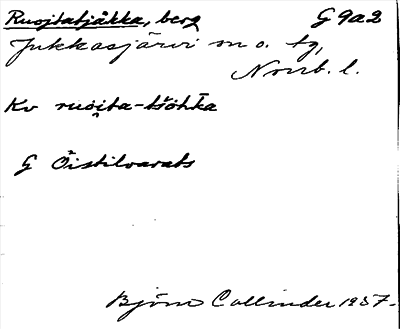 Ruojtatjåkka, berg G 9a2
Jukkasjärvi sn o. tg,
Norrb. l.
Kv ruoi̯ta-tšohka
G Õistilvarats
Björn Collinder 1937.